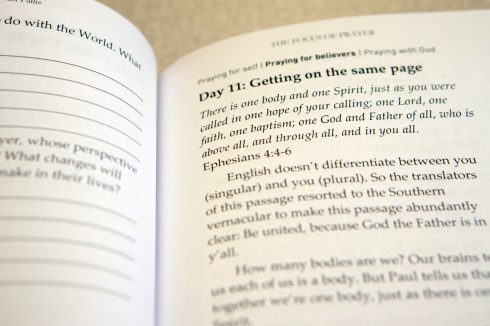 do with the World. What
yer, whose perspective
What changes will
make in their lives?
THE FOCUS OF PRAYER
Praying for self | Praying for believers | Praying with God
Day 11: Getting on the same page
There is one body and one Spirit, just as you were
called in one hope of your calling; one Lord, one
faith, one baptism; one God and Father of all, who is
above all, and through all, and in you all.
Ephesians 4:4-6
English doesn't differentiate between you
(singular) and you (plural). So the translators
of this passage resorted to the Southern
vernacular to make this passage abundantly
clear: Be united, because God the Father is in
y'all.
How many bodies are we? Our brains t
us each of us is a body. But Paul tells us tha
together we're one body, just as there is one
Spirit.